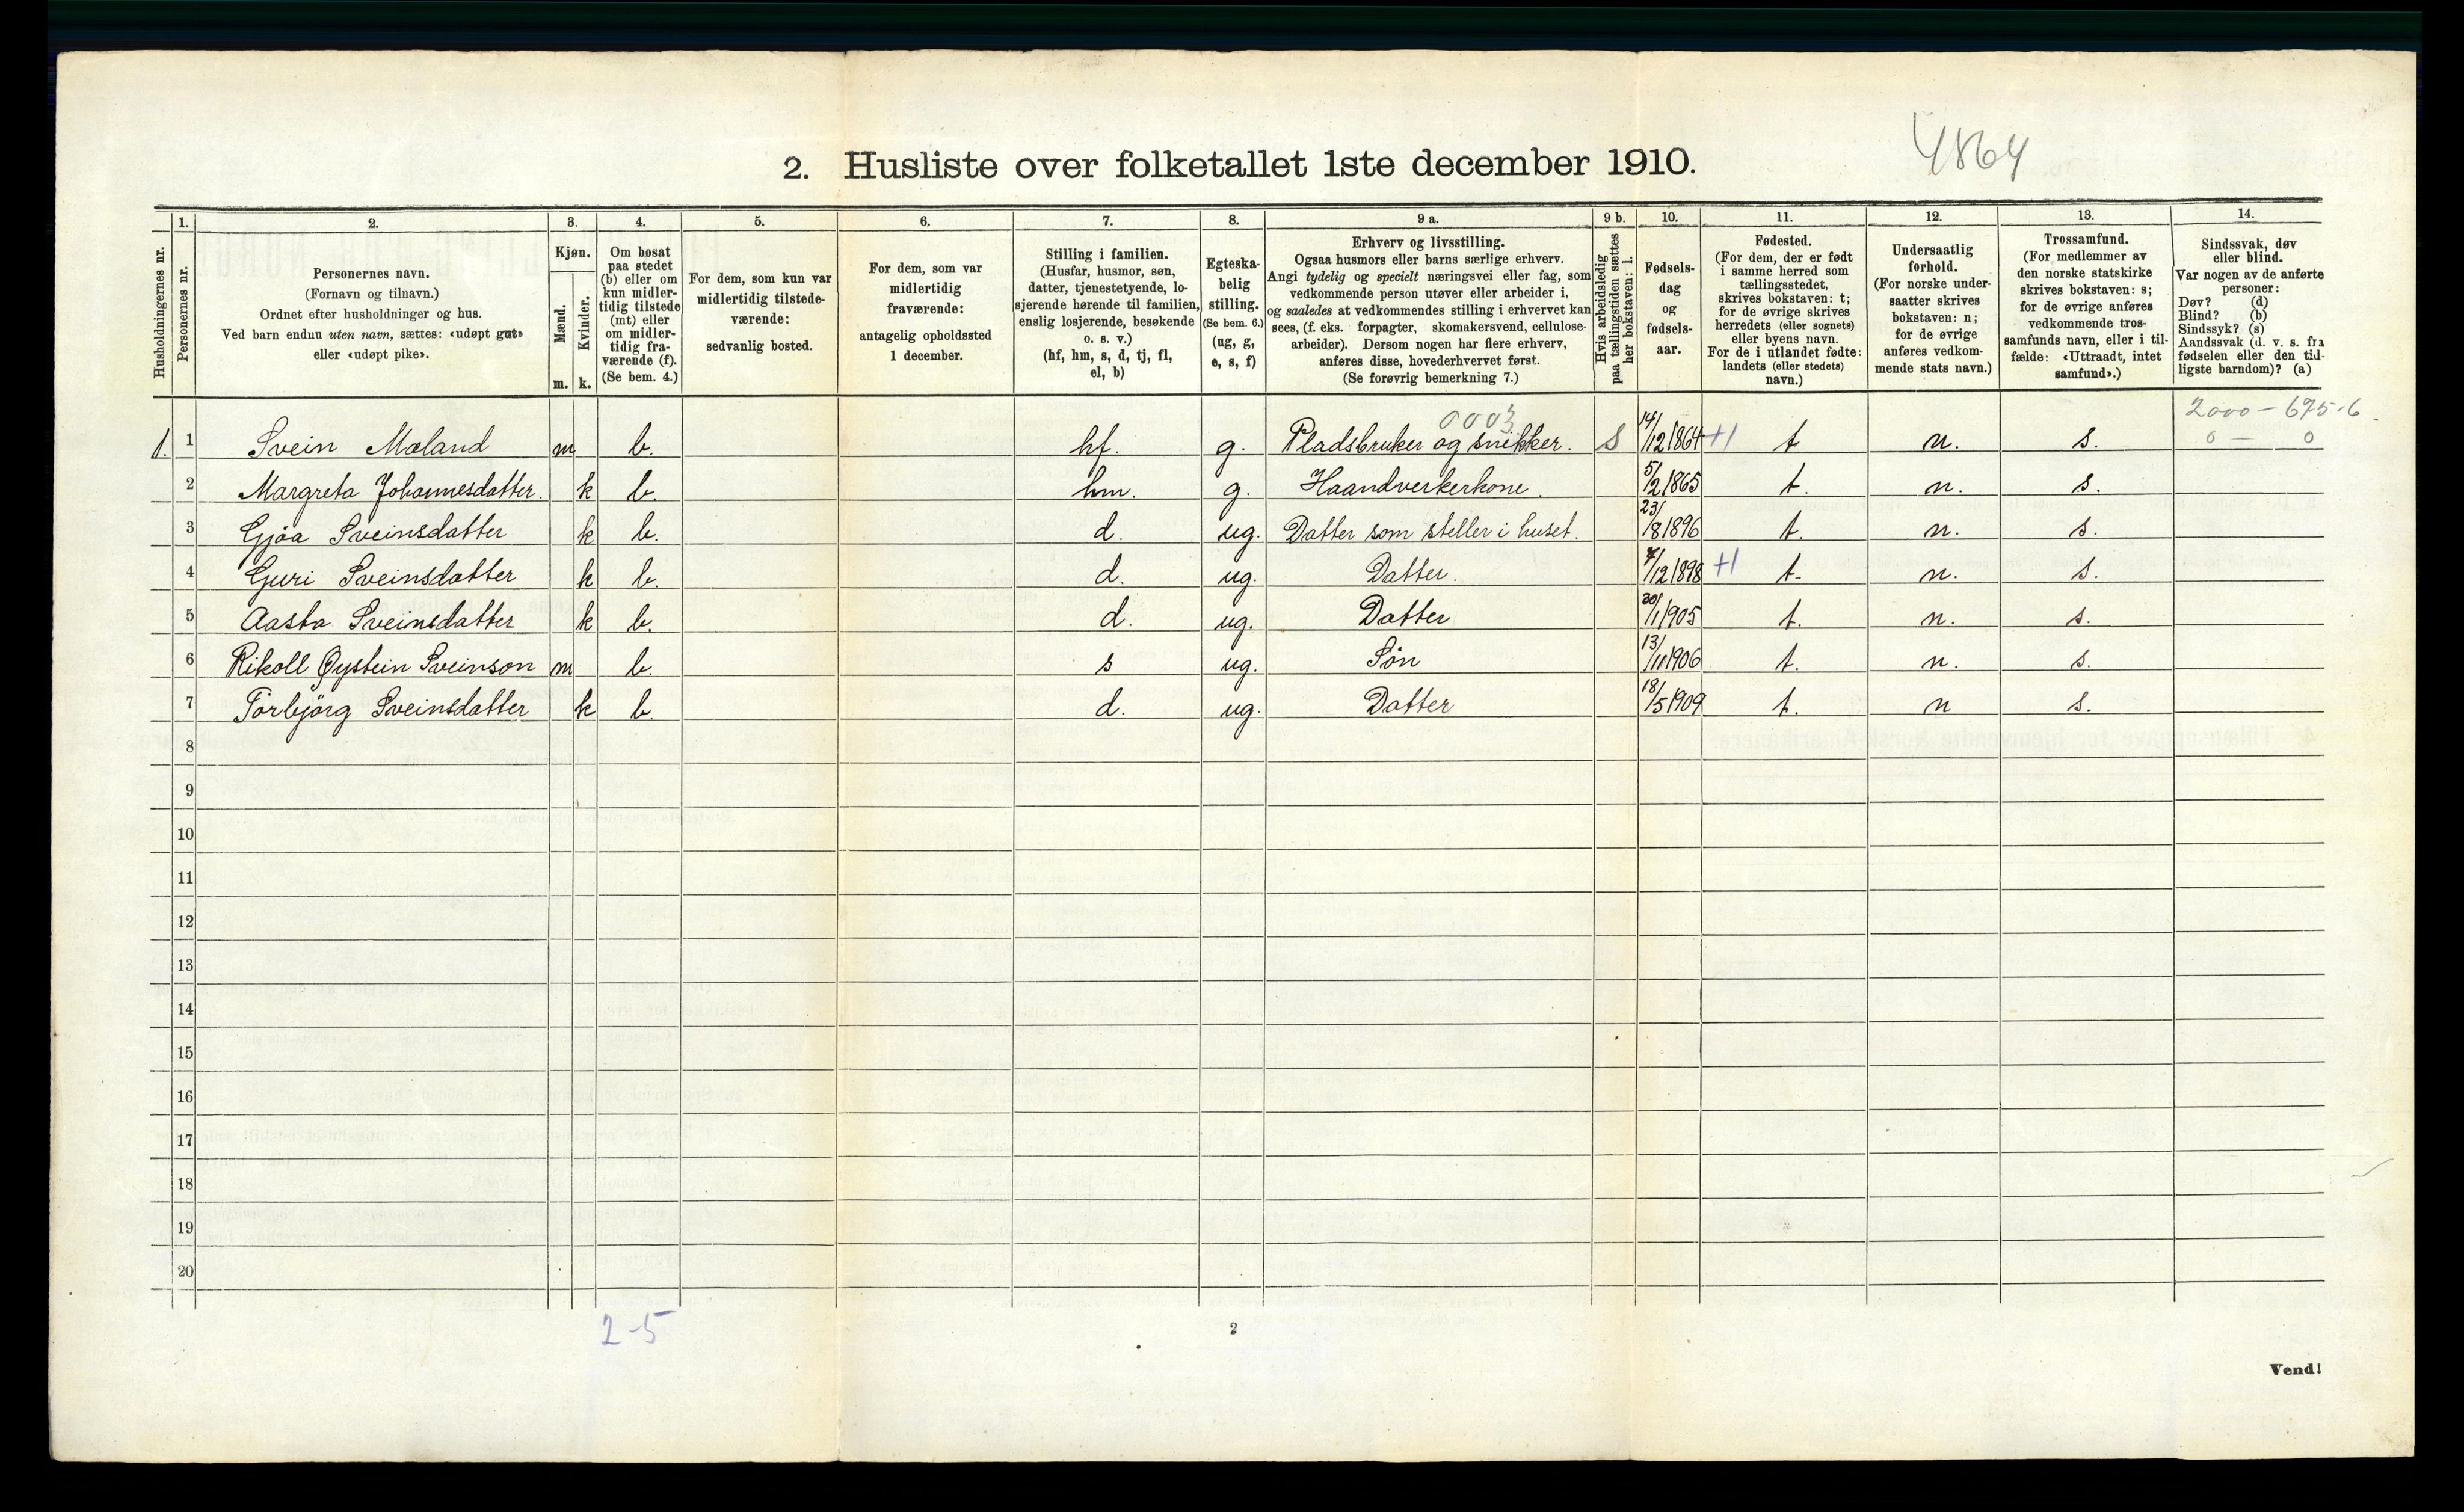 4864
2. Husliste over folketallet 1ste december 1910.
Husholdningernes nr.
1.
Personernes nr.
2.
Personernes navn.
(Fornavn og tilnavn.)
Ordnet efter husholdninger og hus.
Ved barn endnu uten navn, sættes: «udøpt gut»
eller «udøpt pike».
3.
Kjøn.
Mænd.
Kvinder.
m. k.
4.
Om bosat
paa stedet
(b) eller om
kun midler-
tidig tilstede
(mt) eller
om midler-
tidig fra-
værende (f).
(Se bem. 4.)
5.
For dem, som kun var
midlertidig tilstede-
værende:
sedvanlig bosted.
6.
For dem, som var
midlertidig
fraværende:
antagelig opholdssted
1 december.
7.
Stilling i familien.
(Husfar, husmor, søn,
datter, tjenestetyende, lo-
sjerende hørende til familien,
enslig losjerende, besøkende
o. s. v.)
(hf, hm, s, d, tj, fl,
el, b)
8.
Egteska-
belig
stilling.
(Se bem. 6.)
(ug, g,
e, s, f)
9 a.
Erhverv og livsstilling.
Ogsaa husmors eller barns særlige erhverv.
Angi tydelig og specielt næringsvei eller fag, som
vedkommende person utøver eller arbeider i,
og saaledes at vedkommendes stilling i erhvervet kan
sees, (f. eks. forpagter, skomakersvend, cellulose-
arbeider). Dersom nogen har flere erhverv,
anføres disse, hovederhvervet først.
(Se forøvrig bemerkning 7.)
9 b.
Hvis arbeidsledig
paa tællingstiden sættes
her bokstaven: l.
10.
Fødsels-
dag
og
fødsels-
aar.
11.
Fødested.
(For dem, der er født
i samme herred som
tællingsstedet,
skrives bokstaven: t;
for de øvrige skrives
herredets (eller sognets)
eller byens navn.
For de i utlandet fødte:
landets (eller stedets)
navn.)
12.
Undersaatlig
forhold.
(For norske under-
saatter skrives
bokstaven: n;
for de øvrige
anføres vedkom-
mende stats navn.)
13.
Trossamfund.
(For medlemmer av
den norske statskirke
skrives bokstaven: s;
for de øvrige anføres
vedkommende tros-
samfunds navn, eller i til-
fælde: «Uttraadt, intet
samfund».)
14.
Sindssvak, døv
eller blind.
Var nogen av de anførte
personer:
Døv? (d)
Blind? (b)
Sindssyk? (s)
Aandssvak (d. v. s. fra
fødselen eller den tid-
ligste barndom)? (a)
0003 2000 - 675-6
1. 1 Svein Mæland m b. hf. g. Pladsbruker og snikker. S 14/12 1864 +1 t n. s. 0 - 0
2 Margreta Johannesdatter. k b. hm. g. Haandverkerkone. 5/2 1865 t. n. s.
3 Gjøa Sveinsdatter k b. d. ug. Datter som steller i huset. 23/8 1896 t. n. s.
4 Guri Sveinsdatter k b. d. ug. Datter. /12 1898 +1 t- n. s.
5 Aasta Sveinsdatter k b. d. ug. Datter 30/1 1905 t. n. s.
6 Rikoll Øystein Sveinson m b. s ug. Søn 13/11 1906 t. n. s.
7 Torbjörg Sveinsdatter k b. d. ug. Datter 18/5 1909 t. n s.
8
9
10
11
12
13
14
15
16
17
18
19
20
2-5
2
Vend!